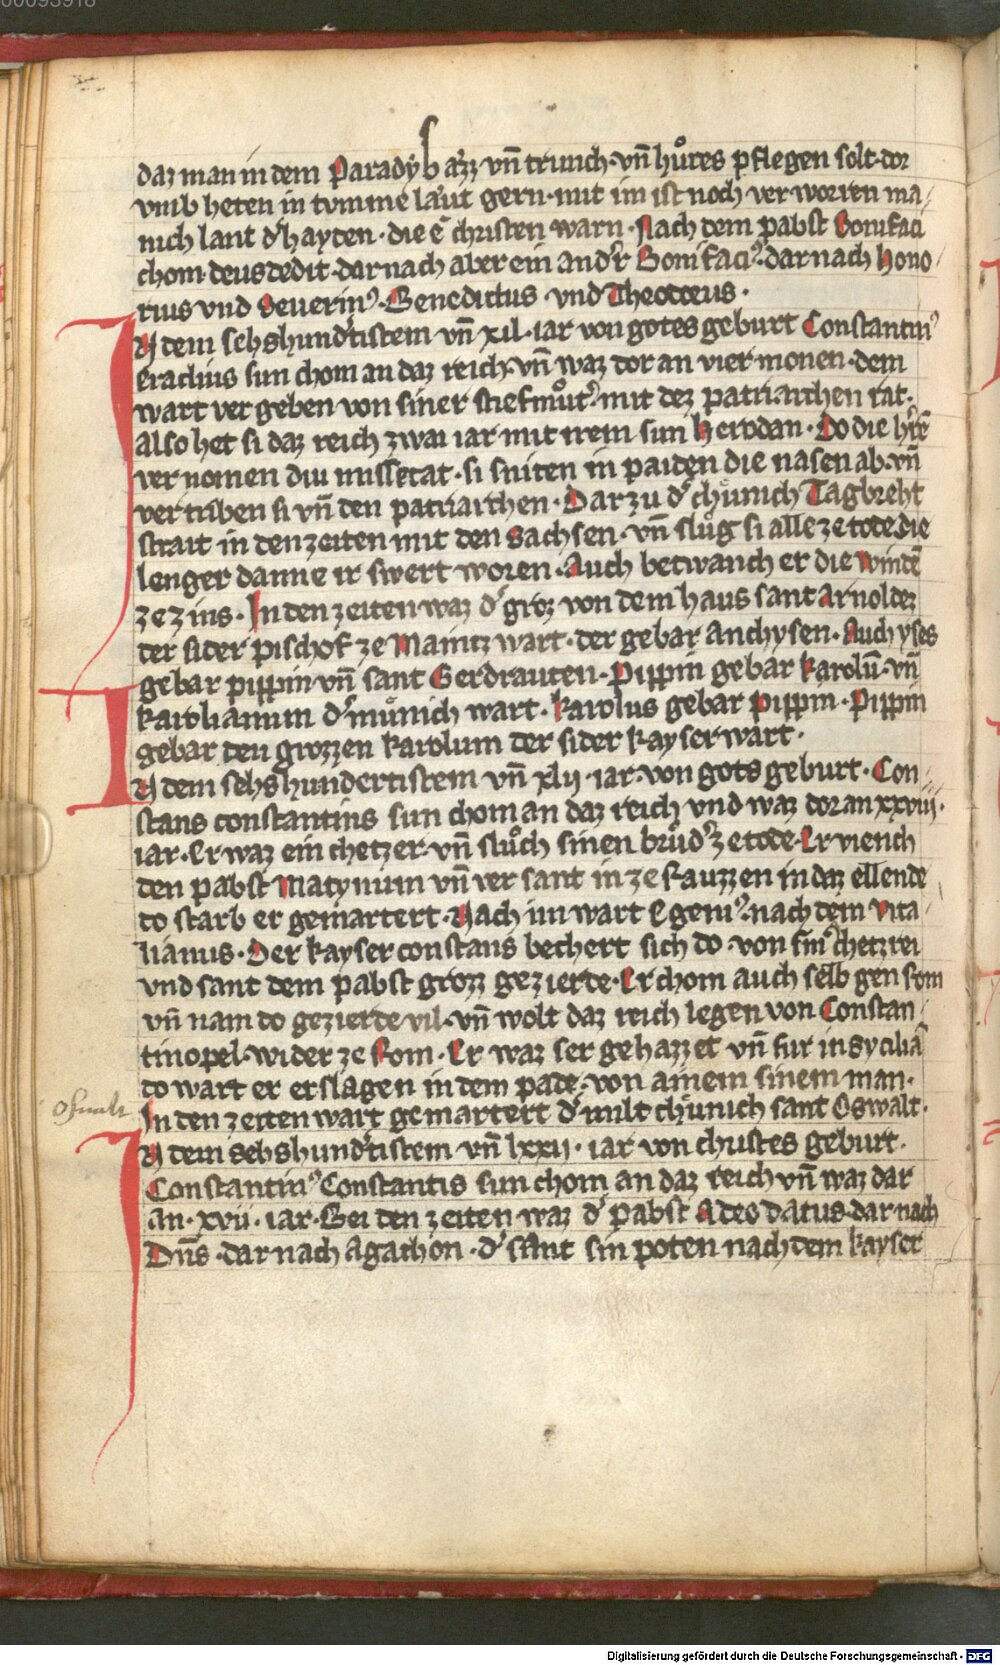 00093918
daz man in dem Paradyß azz vn̄ trunch · vn̄ hůres pflegen solt · dor
vmb heten in tvmme laůt gern · mit im ist noch ver worren ma/
nich lant dʼ hayden · die ē christen warn · Nach dem pabst Bonifaci
chom deusdedit · dar nach aber ein andʼr Bonifaciꝰ · dar nach Hono/
rius vnd Seuerinꝰ · Benedictus · vnd Theodorus ·
IN dem sehshundʼtistem vn̄ xil · iar von gotes geburt Constantinꝰ
eraclius sun chom an daz reich · vn̄ waz dor an vier monen · dem
wart ver geben von siner stiefmůtʼ · mit dez patriarchen rat ·
also het si daz reich zwai iar mit irem sun Herodan · Do die hʼrē
ver nomen diu missetat · si sniten in paiden die nasen ab · vn̄
vertriben si vn̄ den patriarchen · Dar zu dʼ chůnich Tagbreht
strait in den zeiten mit den Sachsen · vn̄ slůg si alle ze tode die
lenger danne ir swert woren · Auch betwanch er die windē
ze zins · In den zeiten waz dʼ groz von dem haus sant Arnoldez
der sider pischof ze Maintz wart · der gebar anchysen · Auchyses
gebar pippin vn̄ sant Gerdrauten · Pippin gebar karolū · vn̄
karolīanum dʼ můnich wart · karolus gebar pippin · Pippin
gebar den grozzen karolum der sider kayser wart ·
IN dem sehshundertistem vn̄ xlij · iar · von gots geburt · Con/
stans constantins sun chom an daz reich vnd waz dor an xxviij ·
iar · Er waz ein chetzer · vn̄ slůch sinen brůdʼ ze tode · Er viench
den pabst Matynium vn̄ ver sant in ze sauzzen in daz ellende
do starb er gemartert · Nach im wart Egeniꝰ · nach dem vita/
lianus · Der kayser constans bechert sich do · von sinʼ chetzrei
vnd sant dem pabst grozz gezierde · Er chom auch selb gen Rom
vn̄ nam do gezierde vil · vn̄ wolt daz reich legen von Constan/
tinopel · wider ze Rom · Er waz ser gehazzet vn̄ fur in syciliā
do wart er erslagen in dem pade · von ainem sinem man ·
In den zeiten wart gemartert dʼ milt chůnich sant Oswalt ·
IN dem sehshundʼtistem vn̄ lxxij · iar von christes geburt ·
Constantinꝰ Constantis sun chom an daz reich vn̄ waz dar
an · xvii · iar · Bei den zeiten waz dʼ pabst Adeodatus · dar nach
Dn̄s · dar nach agathon · dʼ sant sin poten nach dem kayser
Digitalisierung gefördert durch die Deutsche Forschungsgemeinschaft - DFG